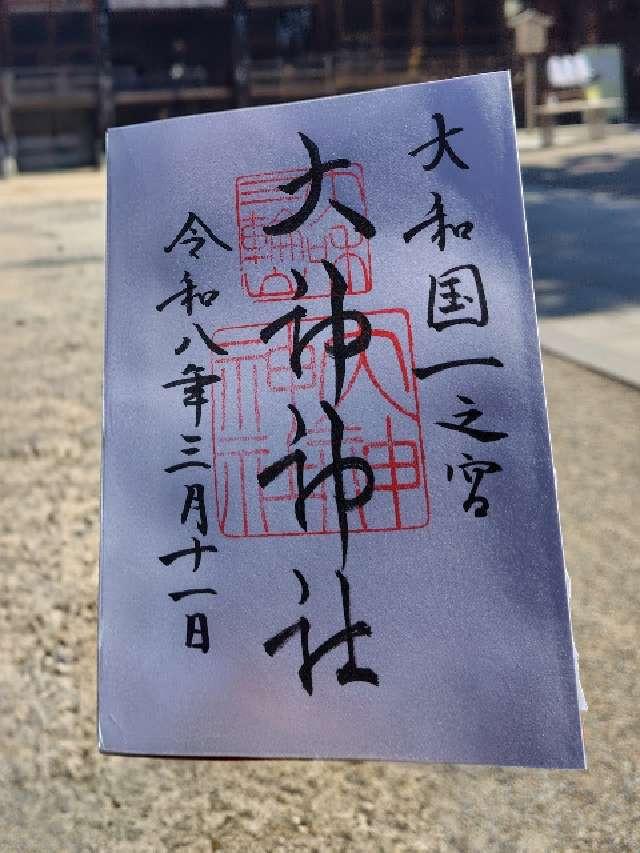 大和国一之宮
大神神社
令和八年三月十一日
三輪山